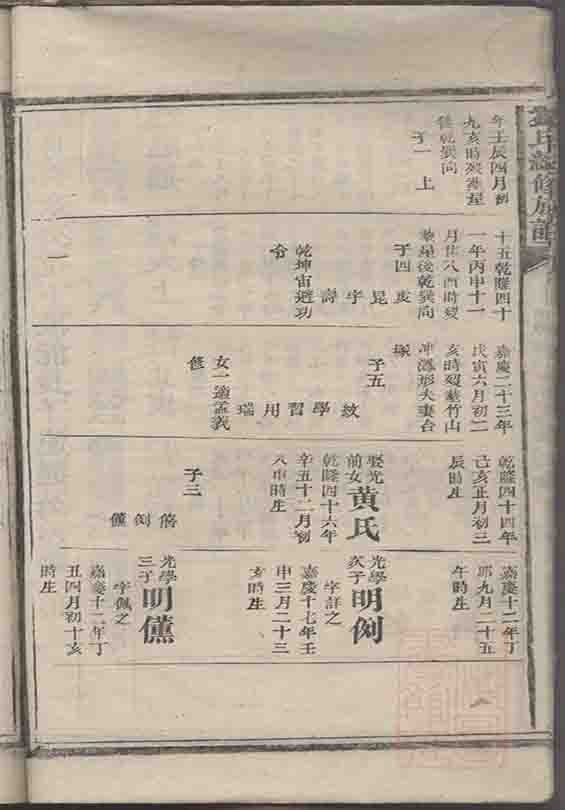 氏續修族譜
年壬辰四月初
九亥時歿葬星
後乾巽向
子一 上
十五乾隆四十
一年丙申十一
月廿八酉時歿
葬星後乾巽向
子四
乾坤宙避功
令
亥 昆 字 壽
嘉慶二十三年
戊寅六月初二
亥時歿葬竹山
冲瀑形夫妻合
塚
子五
紋 學 習 用 瑞
女一適孟義
乾隆四十四年
己亥正月初三
辰時生
娶光前女黃氏
乾隆四十六年
辛丑十二月初
八申時生
子三
例 儻
嘉慶十二年丁
卯九月二十五
午時生
光學次子明例
字詳之
嘉慶十七年壬
申三月二十三
亥時生
光學三子明儻
字佩之
嘉慶十二年丁
丑四月初十亥
時生